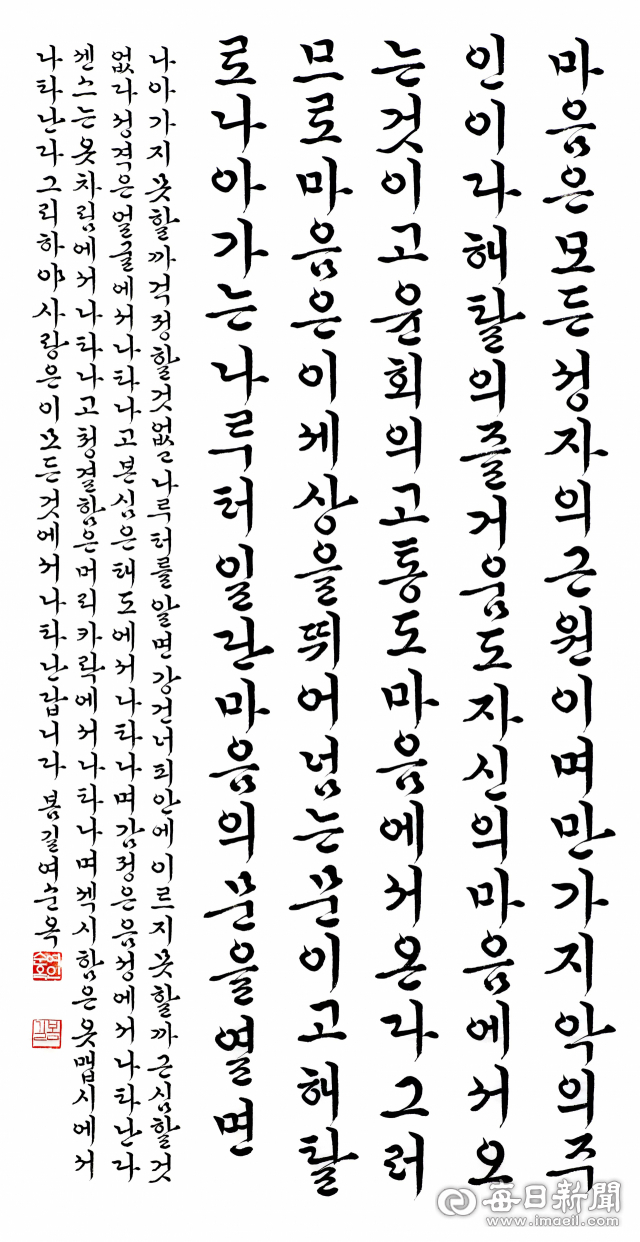 마음은모든성자의근원이며만가지악의주
인이다해탈의즐거움도자신의마음에서오
는것이고윤회의고통도마음에서온다그러
므로마음은이세상을뛰어넘는문이고해탈
로나아가는나루터일란마음의문을열면
나아가지못할까걱정할것없고나루터를알면강건너피안에이르지못할까근심할것
없다성격은얼굴에서나타나고본심은태도에서나타나며감정은음성에서나타난다
센스는옷차림에서나타나고청결함은머리카락에서나타나며섹시함은옷맵시에서
나타난다그리하야사랑은이모든것에서나타난답니다 봄길여순옥
每日新聞
www.imaeil.com